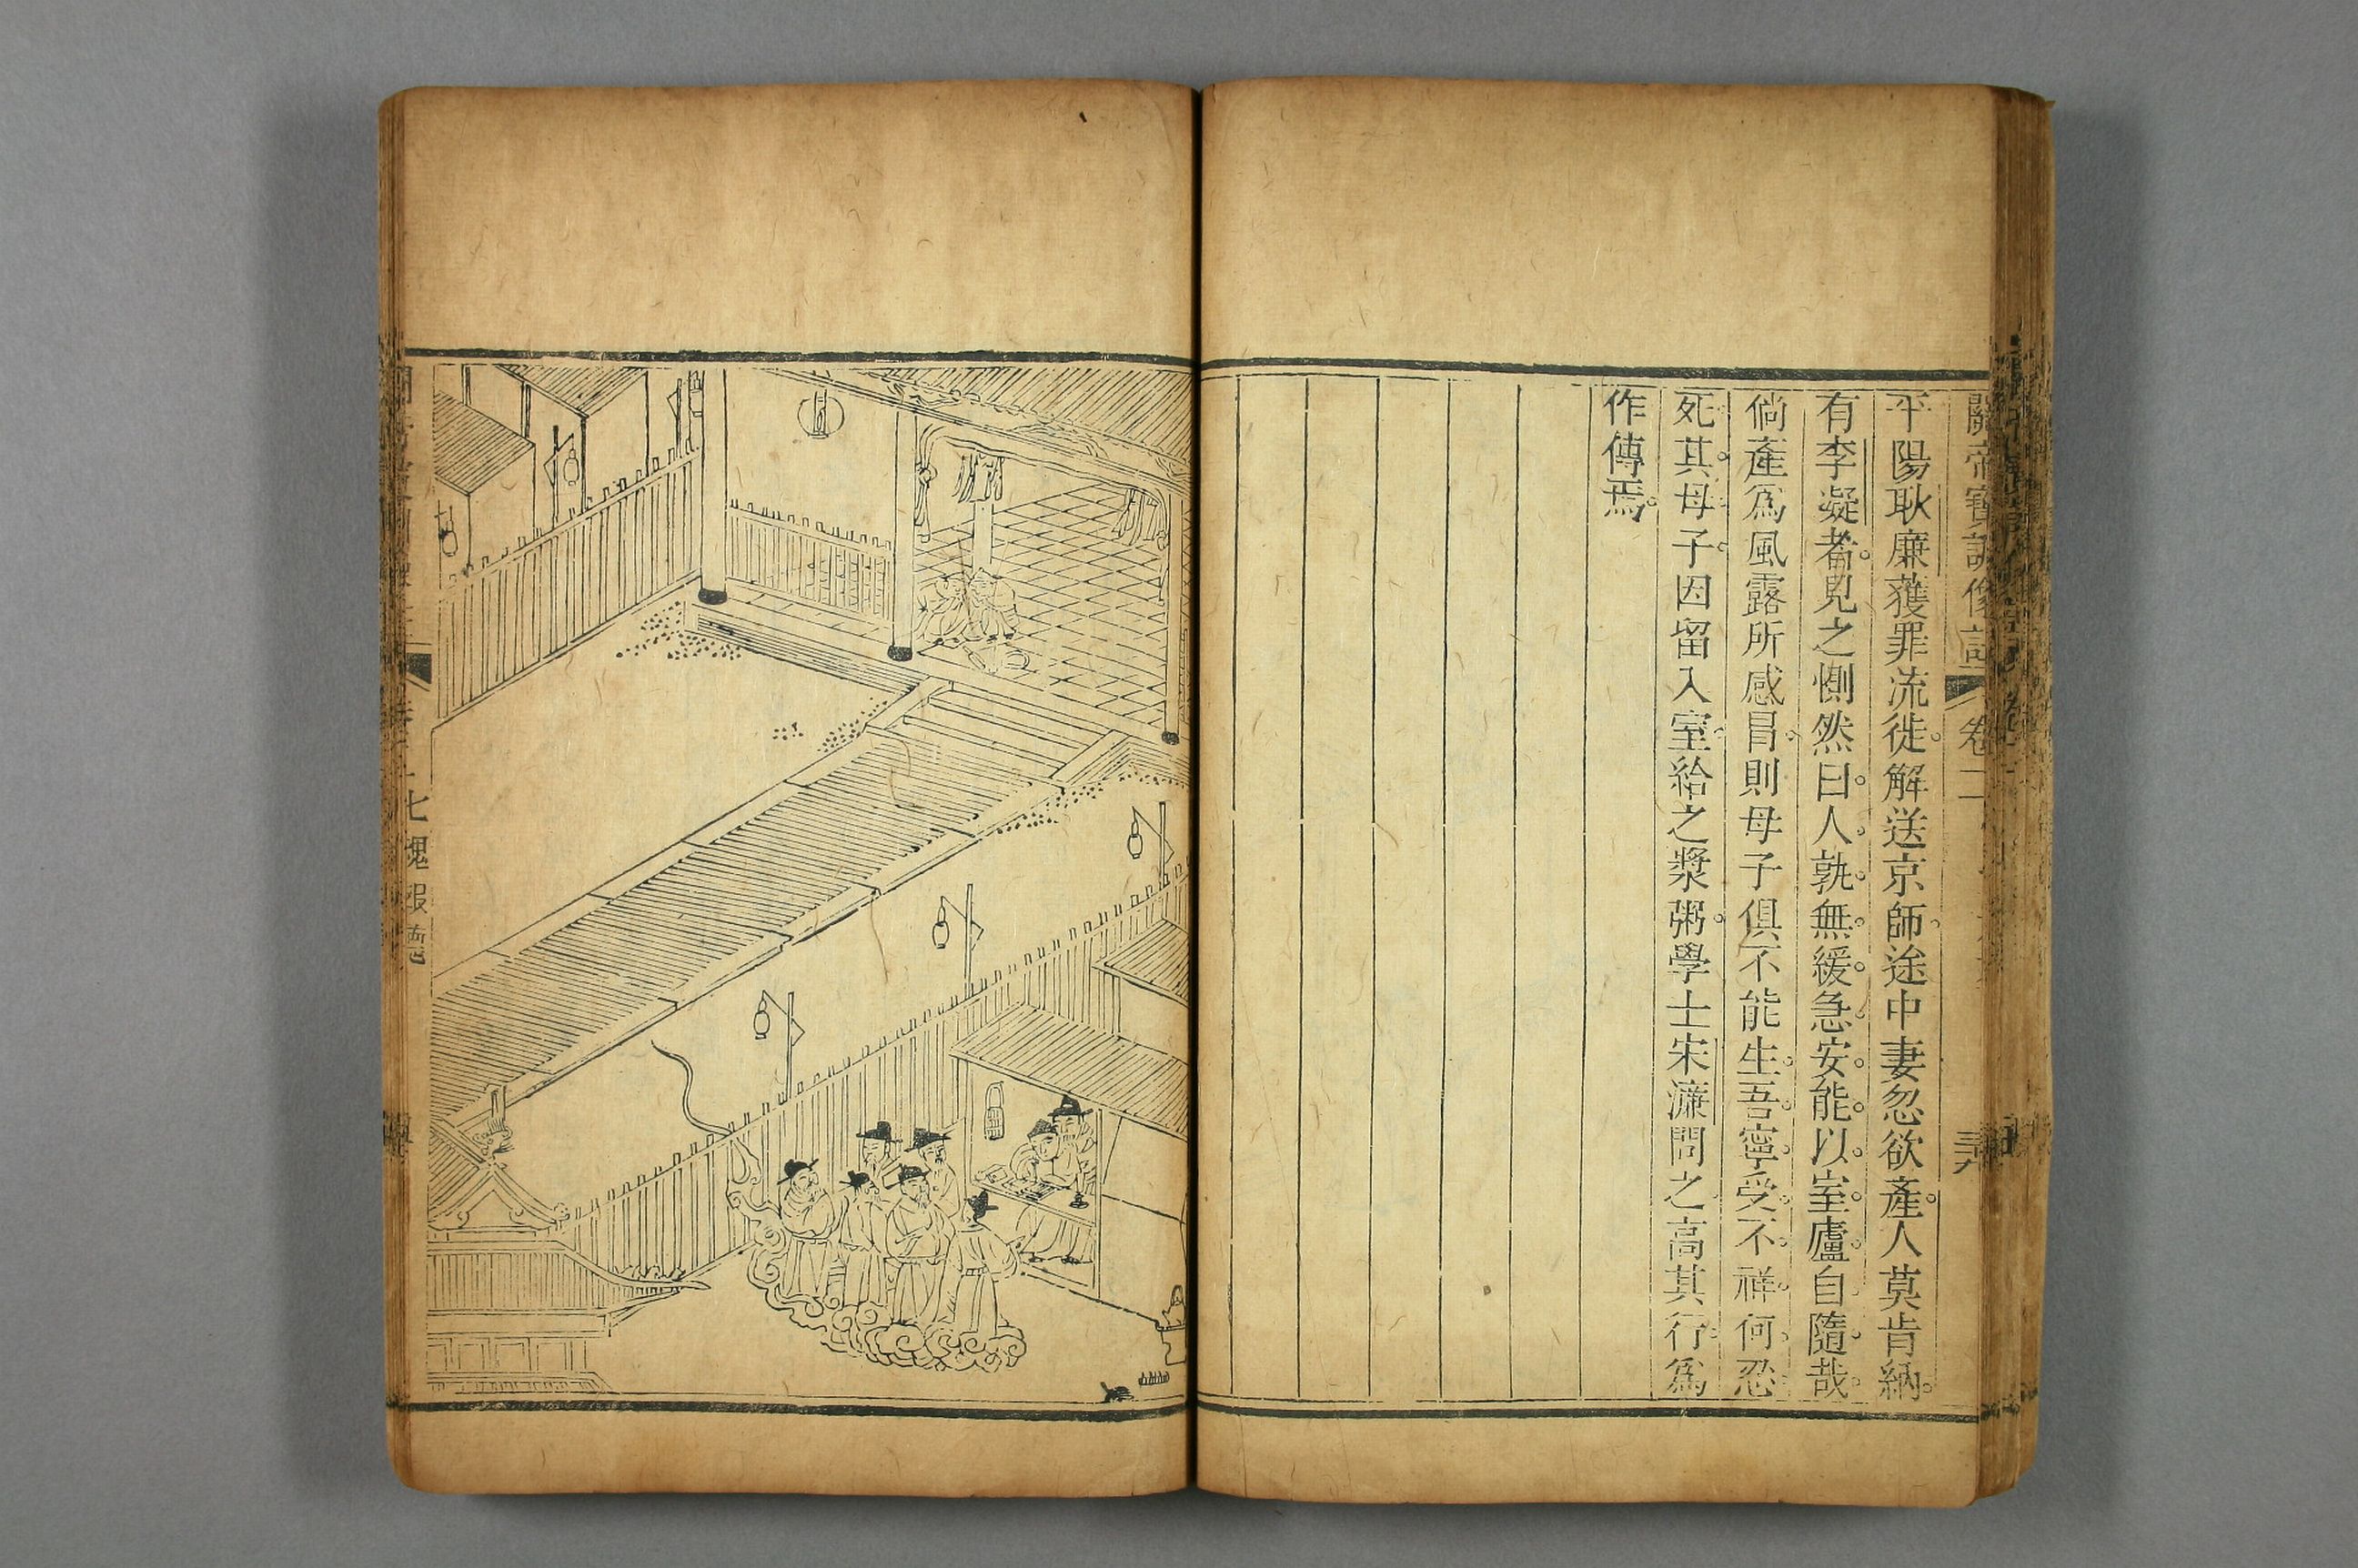 關帝寶訓像註 卷二
平陽耿廉獲罪流徙解送京師途中妻忽欲產人莫肯納
有李凝者見之惻然曰人孰無緩急安能以室廬自隨哉
倘產爲風露所感冒則母子俱不能生吾寧受不祥何忍
死其母子因留入室給之漿粥學士宋濂聞之高其行爲
作傳焉
七魄報德